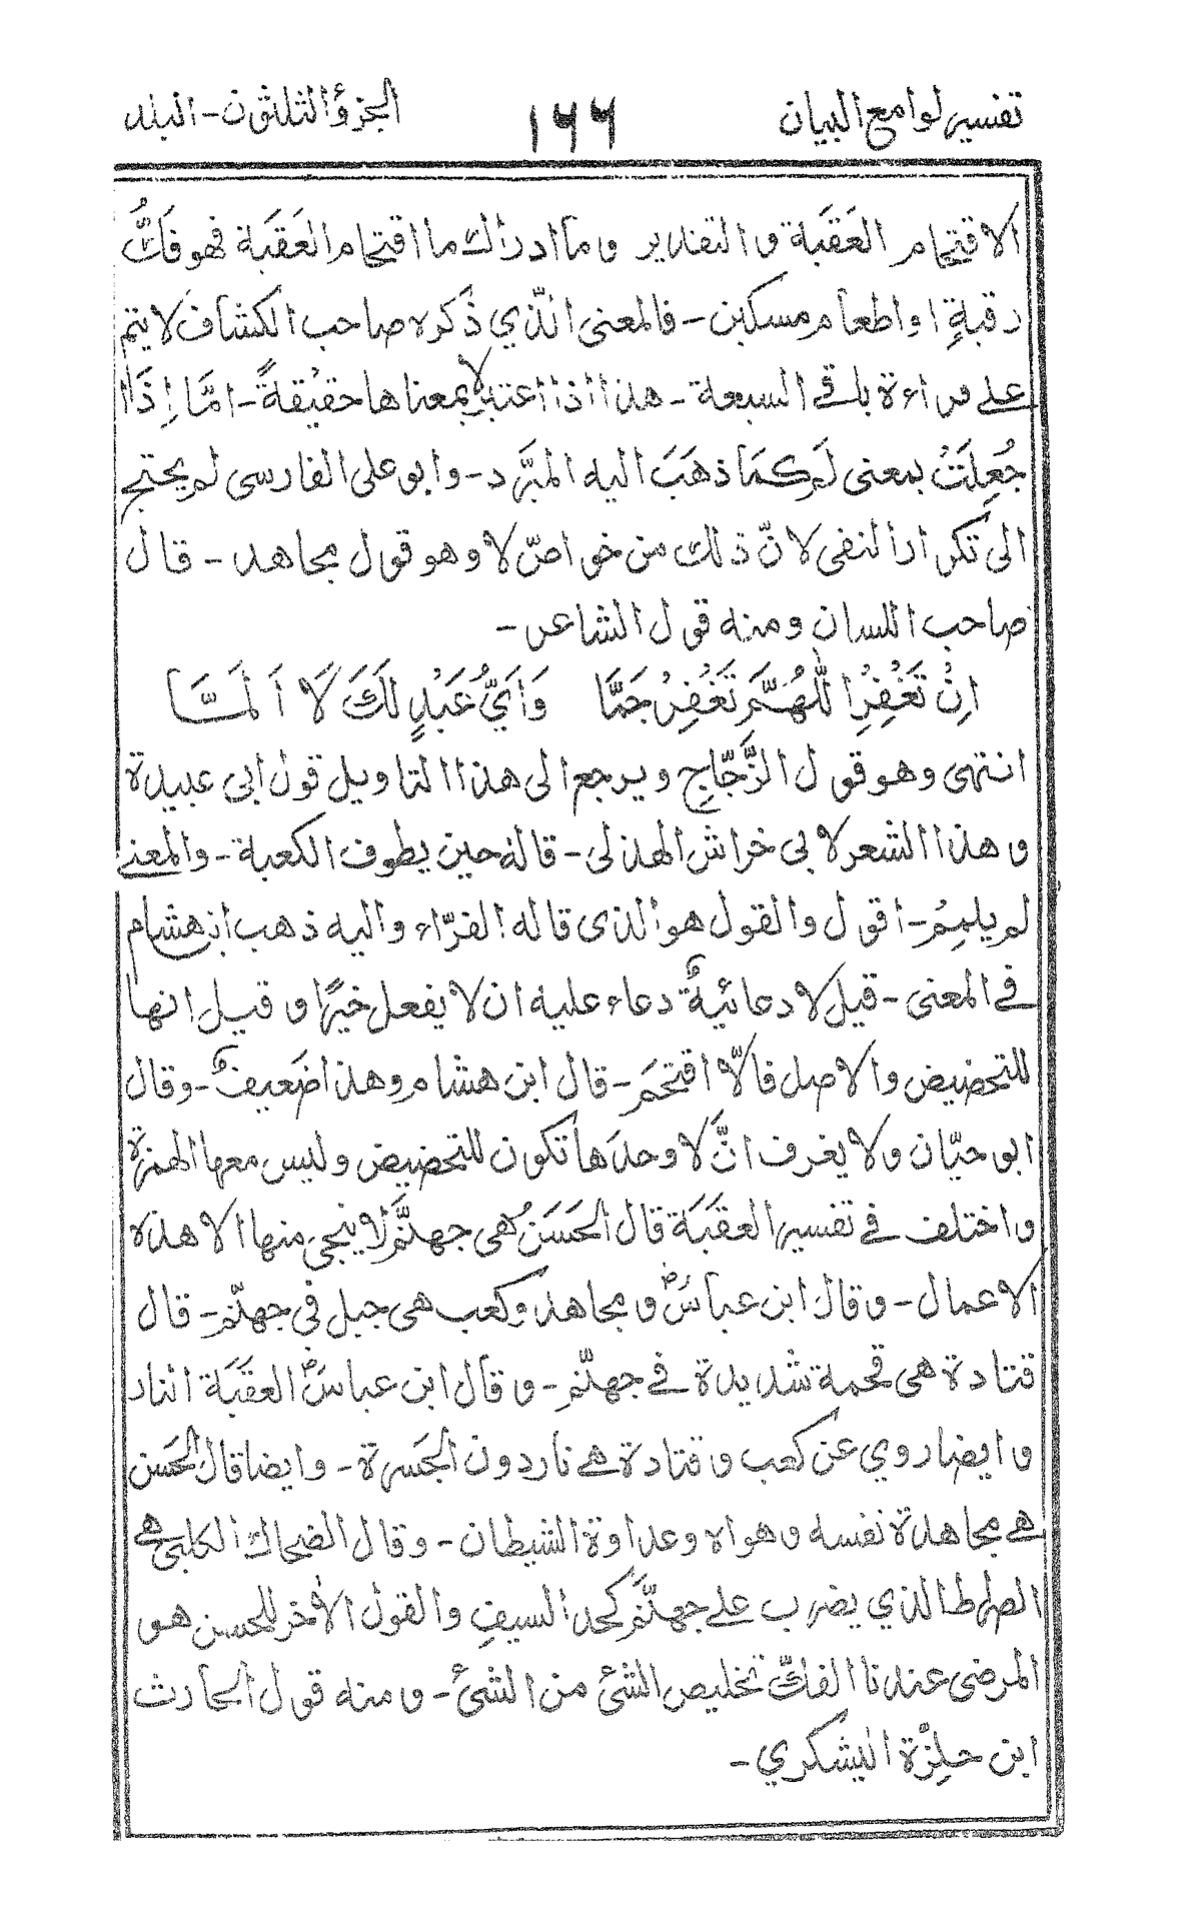 تفسير لوامع البيان ١٦٦ الجزؤ الثلثون - البلد
الاقتحام العَقَبَة و التقدير و مآ ادراك ما اقتحام العَقَبَة فهو فَكُّ
رقبةٍ او اطعام مسكين - فالمعنى الّذي ذكره صاحب الكشاف لا يتم
على قراءة باقي السبعة - هذا اذا اعتبر لا بمعناها حقيقةً - امَّا إذَا
جُعِلَتْ بمعنى لَم كمَا ذهَبَ اليه المبَّرد - و ابو على الفارسى لم يحتج
الى تكرار النفى لانّ ذلك من خواصّ لا و هو قول مجاهد - قال
صاحب اللسان و منه قول الشاعر -
اِنْ تَغْفِرِ اللّٰهُمَّ تَغْفِرْ جَمَّا وَ اَيُّ عَبْدٍ لَكَ لَا اَلَمَّا
انتهى و هو قول الزَّجّاجِ و يرجع الى هذا التاويل قول ابى عبيدة
و هذا الشعر لابي خراش الهذلى - قالهٗ حين يطوف الكعبة - و المعنى
لم يلمِمْ - اقول و القول هو الذى قاله الفرّاء و اليه ذهب ابن هشام
في المعنى - قيل لا دعائيةٌ دعاء عليه ان لا يفعل خيرًا و قيل انها
للتحضيض و الاصل فالّا اقتحَمَ - قال ابن هشام و هذا ضَعيفٌ - و قال
ابو حيّان و لا يعرف انَّ لا وحدها تكون للتحضيض و ليس معها الهمزة
و اختلف في تفسير العقَبَة قال الحَسَنُ هى جهنَّم لا ينجى منها الا هذه
الاعمال - و قال ابن عباسؓ و مجاهد و كعب هى جبل فى جهنّم - قال
قتادة هى قحمة شديدة في جهنّم - و قال ابن عباسؓ العقَبَة النار
و ايضا روي عن كعب و قتادة هے نار دون الجَسرة - و ايضا قال الحَسَن
هے مجاهدة نفسه و هواه و عداوة الشيطان - و قال الضحاك الكلبى هے
الصراط الذي يضرب على جهنَّم كحد السيفِ و القول الأخر للحسن هو
المرضى عندنا الفكّ تخليص الشئ من الشئ - و منه قول الحارث
ابن حلِزَّة اليشكري -